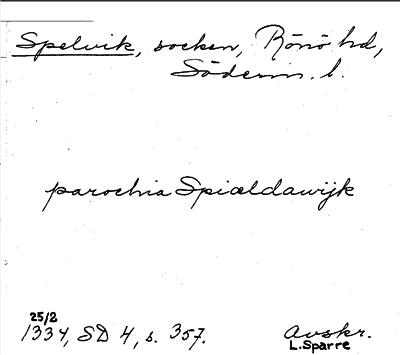 Spelvik, socken, Rönö hd,
Söderm. l.
parochia Spiældawijk
25/2
1334, SD 4, s. 357.
Avskr.
L. Sparre